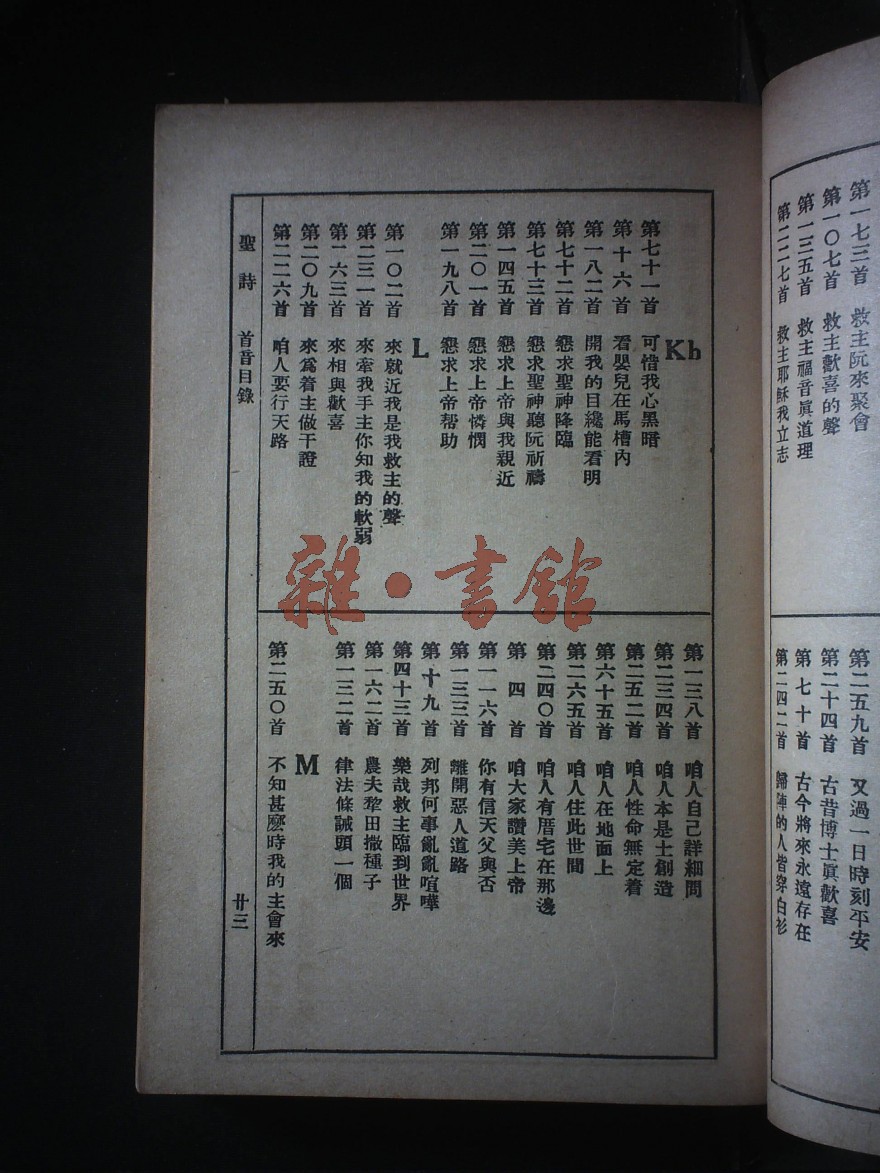 第一七三首 救主阮來聚會
第一〇七首 救主歡喜的聲
第一三五首 救主福音眞道理
第二二七首 救主耶穌我立志
第二五九首 又過一日時刻平安
第二十四首 古昔博士眞歡喜
第七十首 古今將來永遠存在
第二四二首 歸陣的人皆穿白衫
Kh
第七十一首 可惜我心黑暗
第十六首 看嬰兒在馬槽內
第一八二首 開我的目纔能看明
第七十二首 懇求聖神降臨
第七十三首 懇求聖神聽阮祈禱
第一四五首 懇求上帝與我親近
第二〇一首 懇求上帝憐憫
第一九八首 懇求上帝帮助
L
第一〇二首 來就近我是我救主的聲
第二三一首 來牽我手主你知我的軟弱
第一六三首 來相與歡喜
第二〇九首 來爲着主做干證
第二二六首 咱人要行天路
第一三八首 咱人自己詳細問
第二三四首 咱人本是土創造
第二五二首 咱人性命無定着
第六十五首 咱人在地面上
第二六五首 咱人住此世間
第二四〇首 咱人有厝宅在那邊
第四首 咱大家讚美上帝
第一一六首 你有信天父與否
第一三三首 離開惡人道路
第十九首 列邦何事亂亂喧嘩
第四十三首 樂哉救主臨到世界
第一六二首 農夫犂田撒種子
第一三二首 律法條誡頭一個
M
第二五〇首 不知甚麽時我的主會來
聖詩 首音目錄 廿三
雜·書館